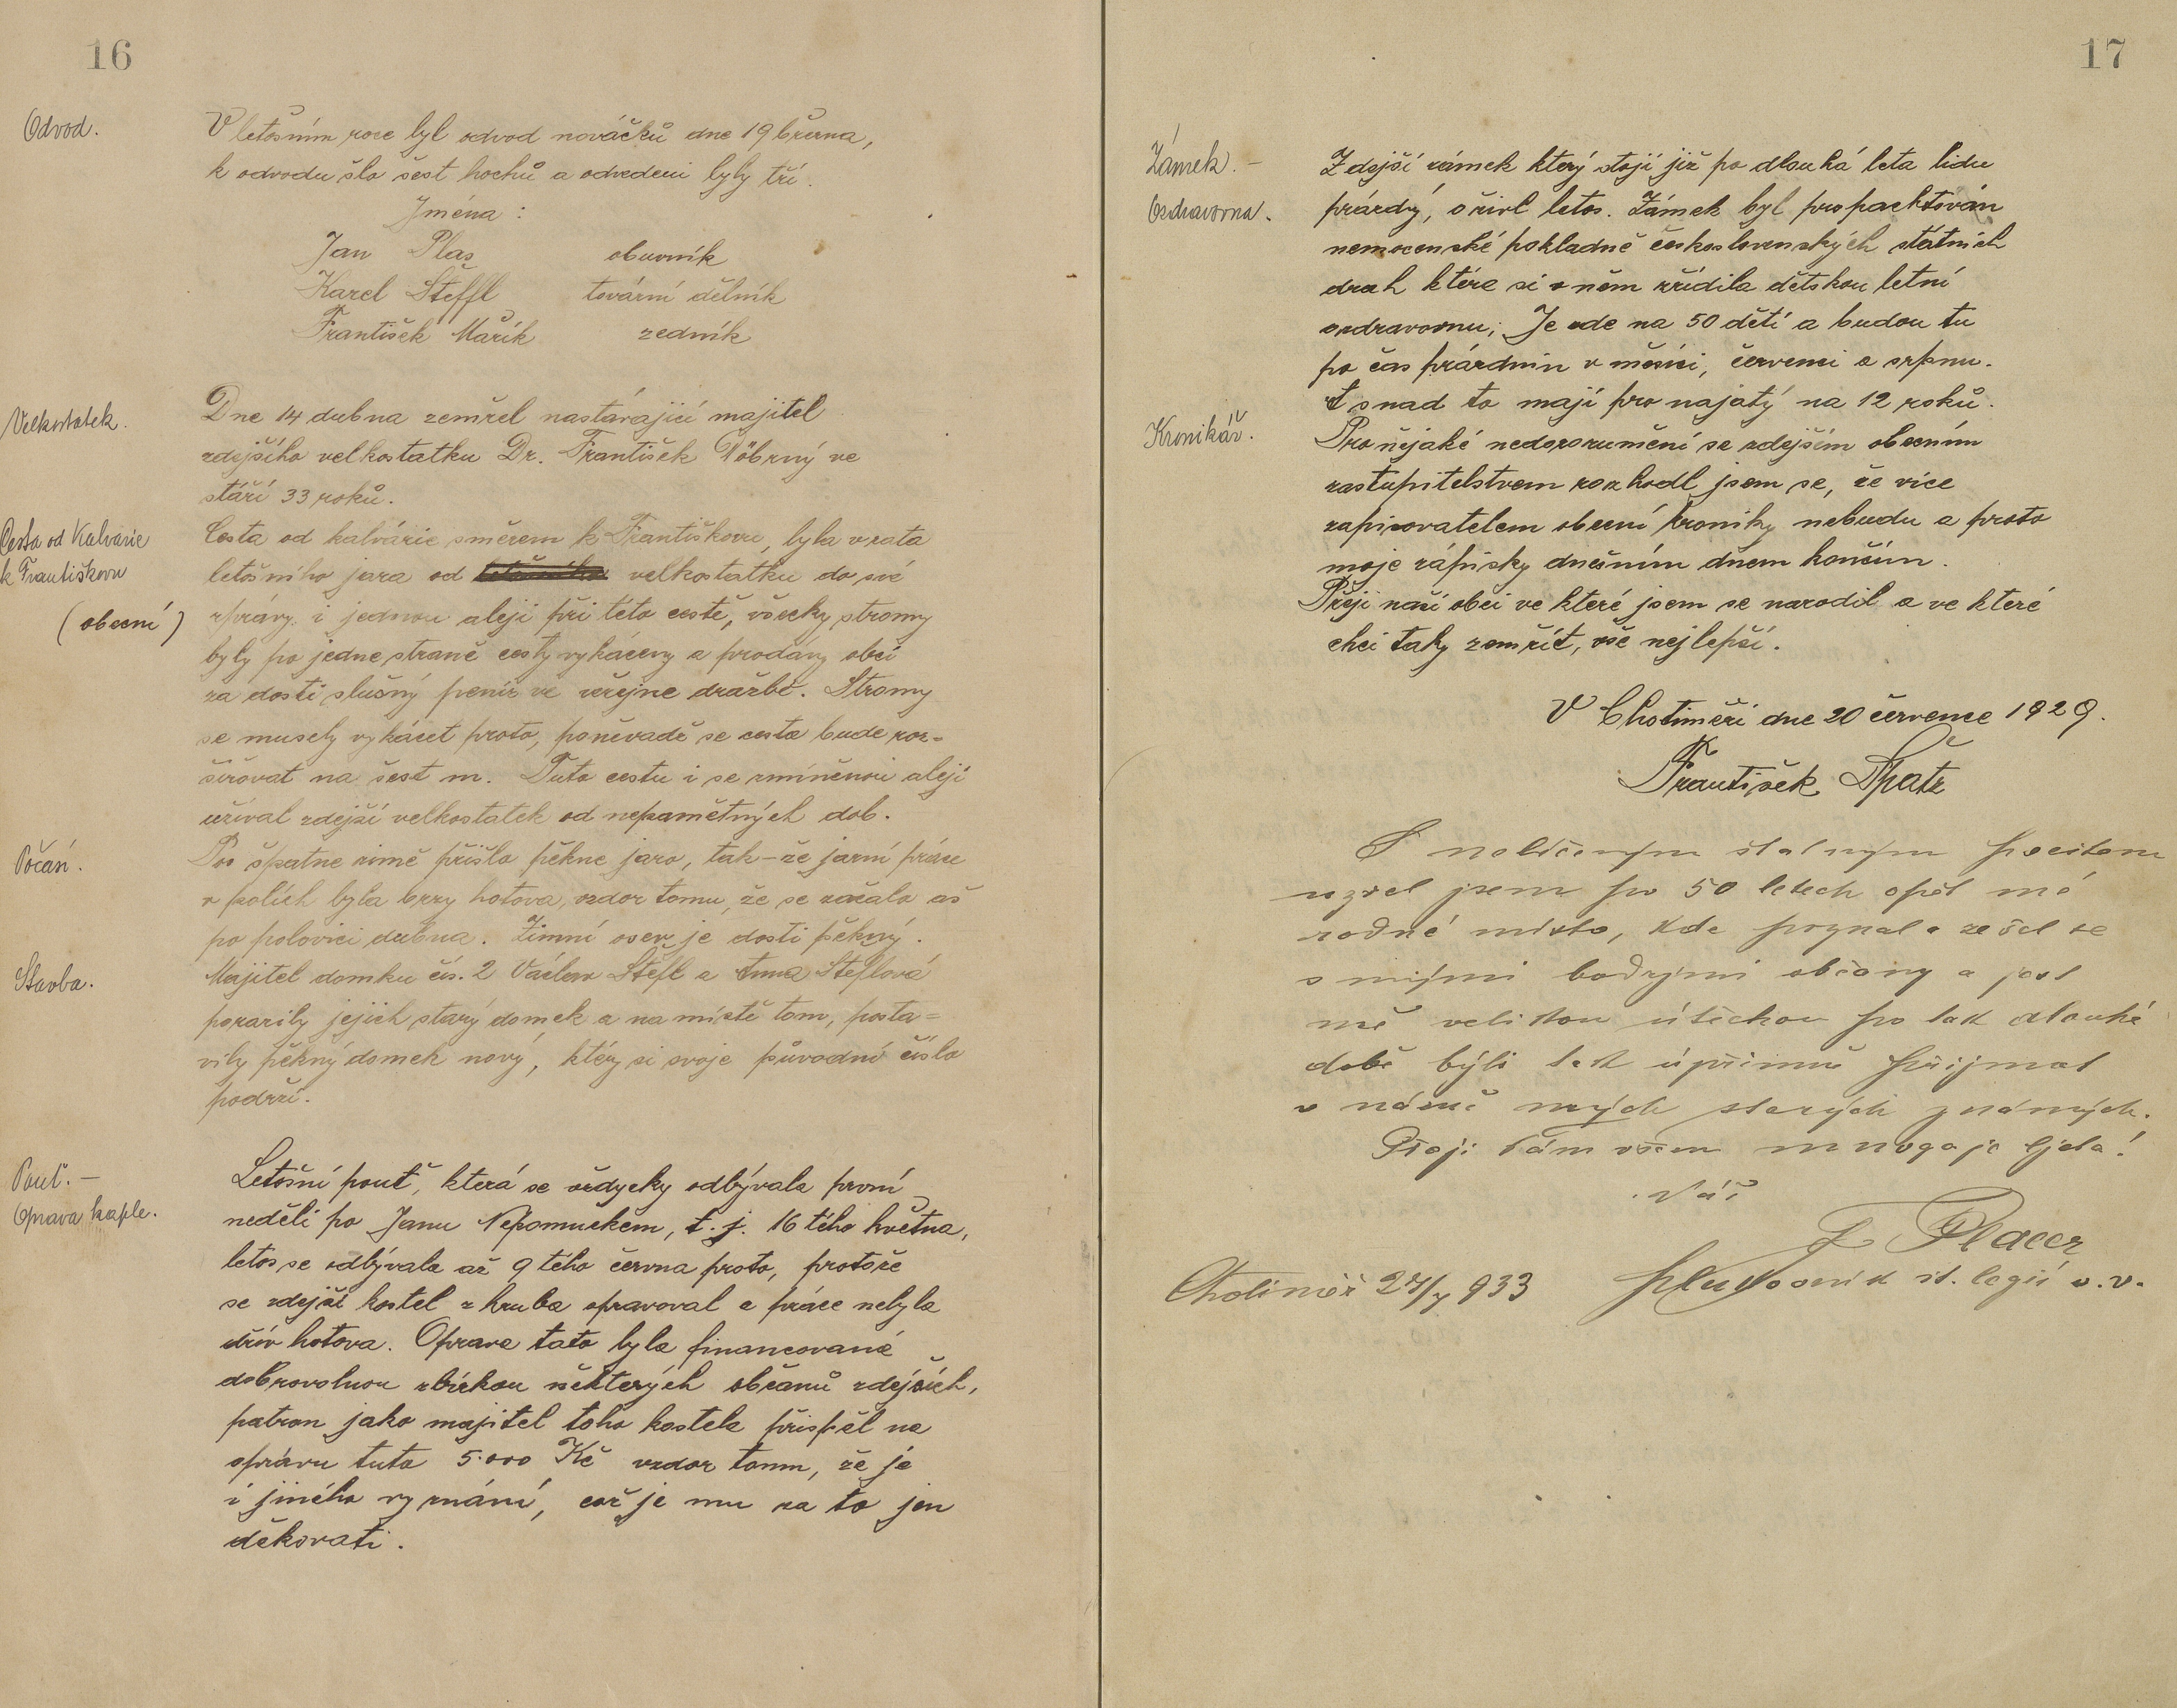 16
Odvod.
V letošním roce byl odvod nováčků dne 19 března,
k odvodu šlo šest hochů a odvedeni byly tři.
Jména :
Jan Plas obuvník
Karel Šteffl tovární dělník
František Mařík zedník
Velkostatek.
Dne 14 dubna zemřel nastávající majitel
zdejšího velkostatku Dr. František Döbrný ve
stáří 33 roků.
Cesta od Kalvarie
k Františkovu
(obecní)
Cesta od kalvárie směrem k Františkovu, byla vzata
letošního jara od velkostatku do své
zprávy, i jednou aleji při této cestě, všecky stromy
byly po jedne straně cesty vykáceny a prodány obcí
za dosti slušný peníz ve veřejne dražbě. Stromy
se musely vykácet proto, poněvadž se cesta bude roz=
šiřovat na šest m. Tuto cestu i se zmíněnou alejí
užíval zdejší velkostatek od nepamětných dob.
Počasí.
Po špatne zimě přišlo pěkne jaro, tak-že jarní práce
v polích byla brzy hotova, vzdor tomu, že se začalo až
po polovici dubna. Zimní osev je dosti pěkný.
Stavba.
Majitel domku čís. 2 Václav Štefl a Anna Šteflová
porazily jejich starý domek a na místě tom, posta=
vily pěkný domek nový, který si svoje původní číslo
podrží.
Pouť. –
Oprava kaple.
Letošní pouť, která se vždycky odbývala první
neděli po Janu Nepomuckém, t. j. 16 tého května,
letos se odbývala až 9 tého června proto, protože
se zdejší kostel zhruba opravoval a práce nebyla
dřív hotova. Oprava tato byla financovaná
dobrovolnou sbírkou některých občanů zdejších,
patron jako majitel toho kostela přispěl na
správu tuto 5.000 Kč vzdor tomu, že je
i jiného vyznání, což je mu za to jen
děkovati.
17
Zámek. –
Ozdravovna.
Zdejší zámek který stojí již po dlouhá leta lidu
prázdý, ožívl letos. Zámek byl propachtován
nemocenské pokladně československých státních
drah ktére si v něm zřídila dětskou letní
ozdravovnu; Je zde na 50 dětí a budou tu
po čas prázdnin v měsíci, červenci a srpnu.
A snad to mají pronajatý na 12 roků.
Kronikář.
Pro nějaké nedorozumění se zdejším obecním
zastupitelstvem rozhodl jsem se, že více
zapisovatelem obecní kroniky nebudu a proto
moje zápisky dnešním dnem končím.
Přeji naší obci ve které jsem se narodil a ve které
chci taky zemřít, vše nejlepší.
V Chotiměři dne 20 července 1929.
František Špatz
S nelíčeným slatným pocitem
uzřel jsem po 50 letech opět mé
rodné místo, kde poznal a sešel se
s mými bodrými občany a jest
mě velikou útěchou po tak dlouhé
době býti tak úpřimně přijmat
v náruč mých starých známých.
Přeji Vám všem mnogaja ljeta!
Váš
F Placer
Chotiměř 27/7 933 plukovník čl. legií v. v.